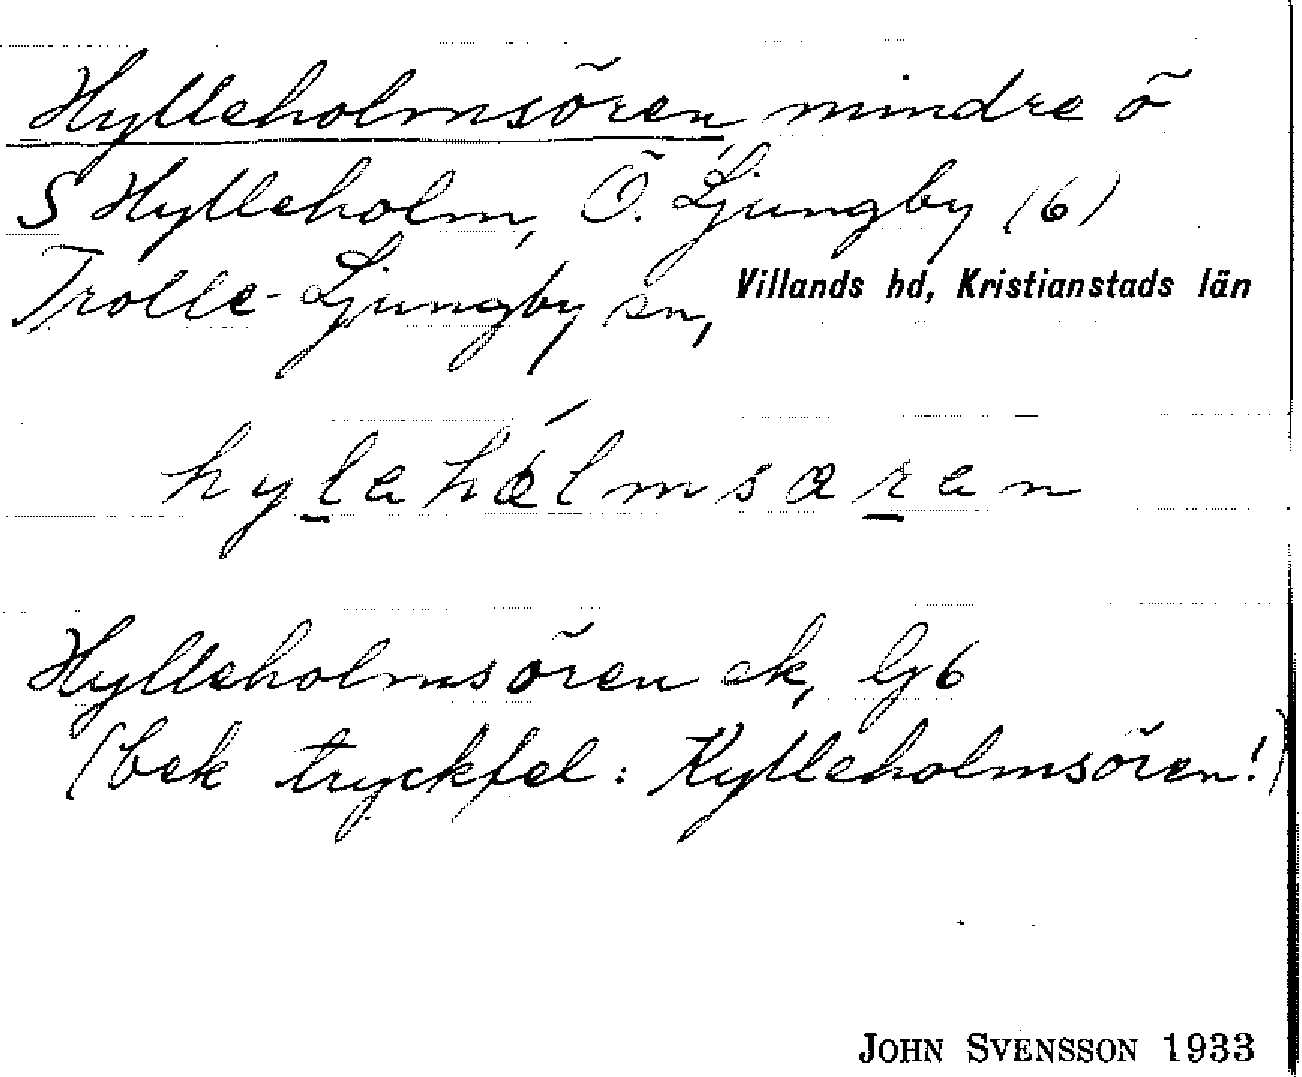 Hylleholmsören mindre ö
S Hylleholm, Ö. Ljungby (6)
Trolle-Ljungby sn, Villands hd, Kristianstads län
hylehålmsæren
Hylleholmsören ek, lj6
(bek tryckfel: Kylleholmsören!)
JOHN SVENSSON 1933